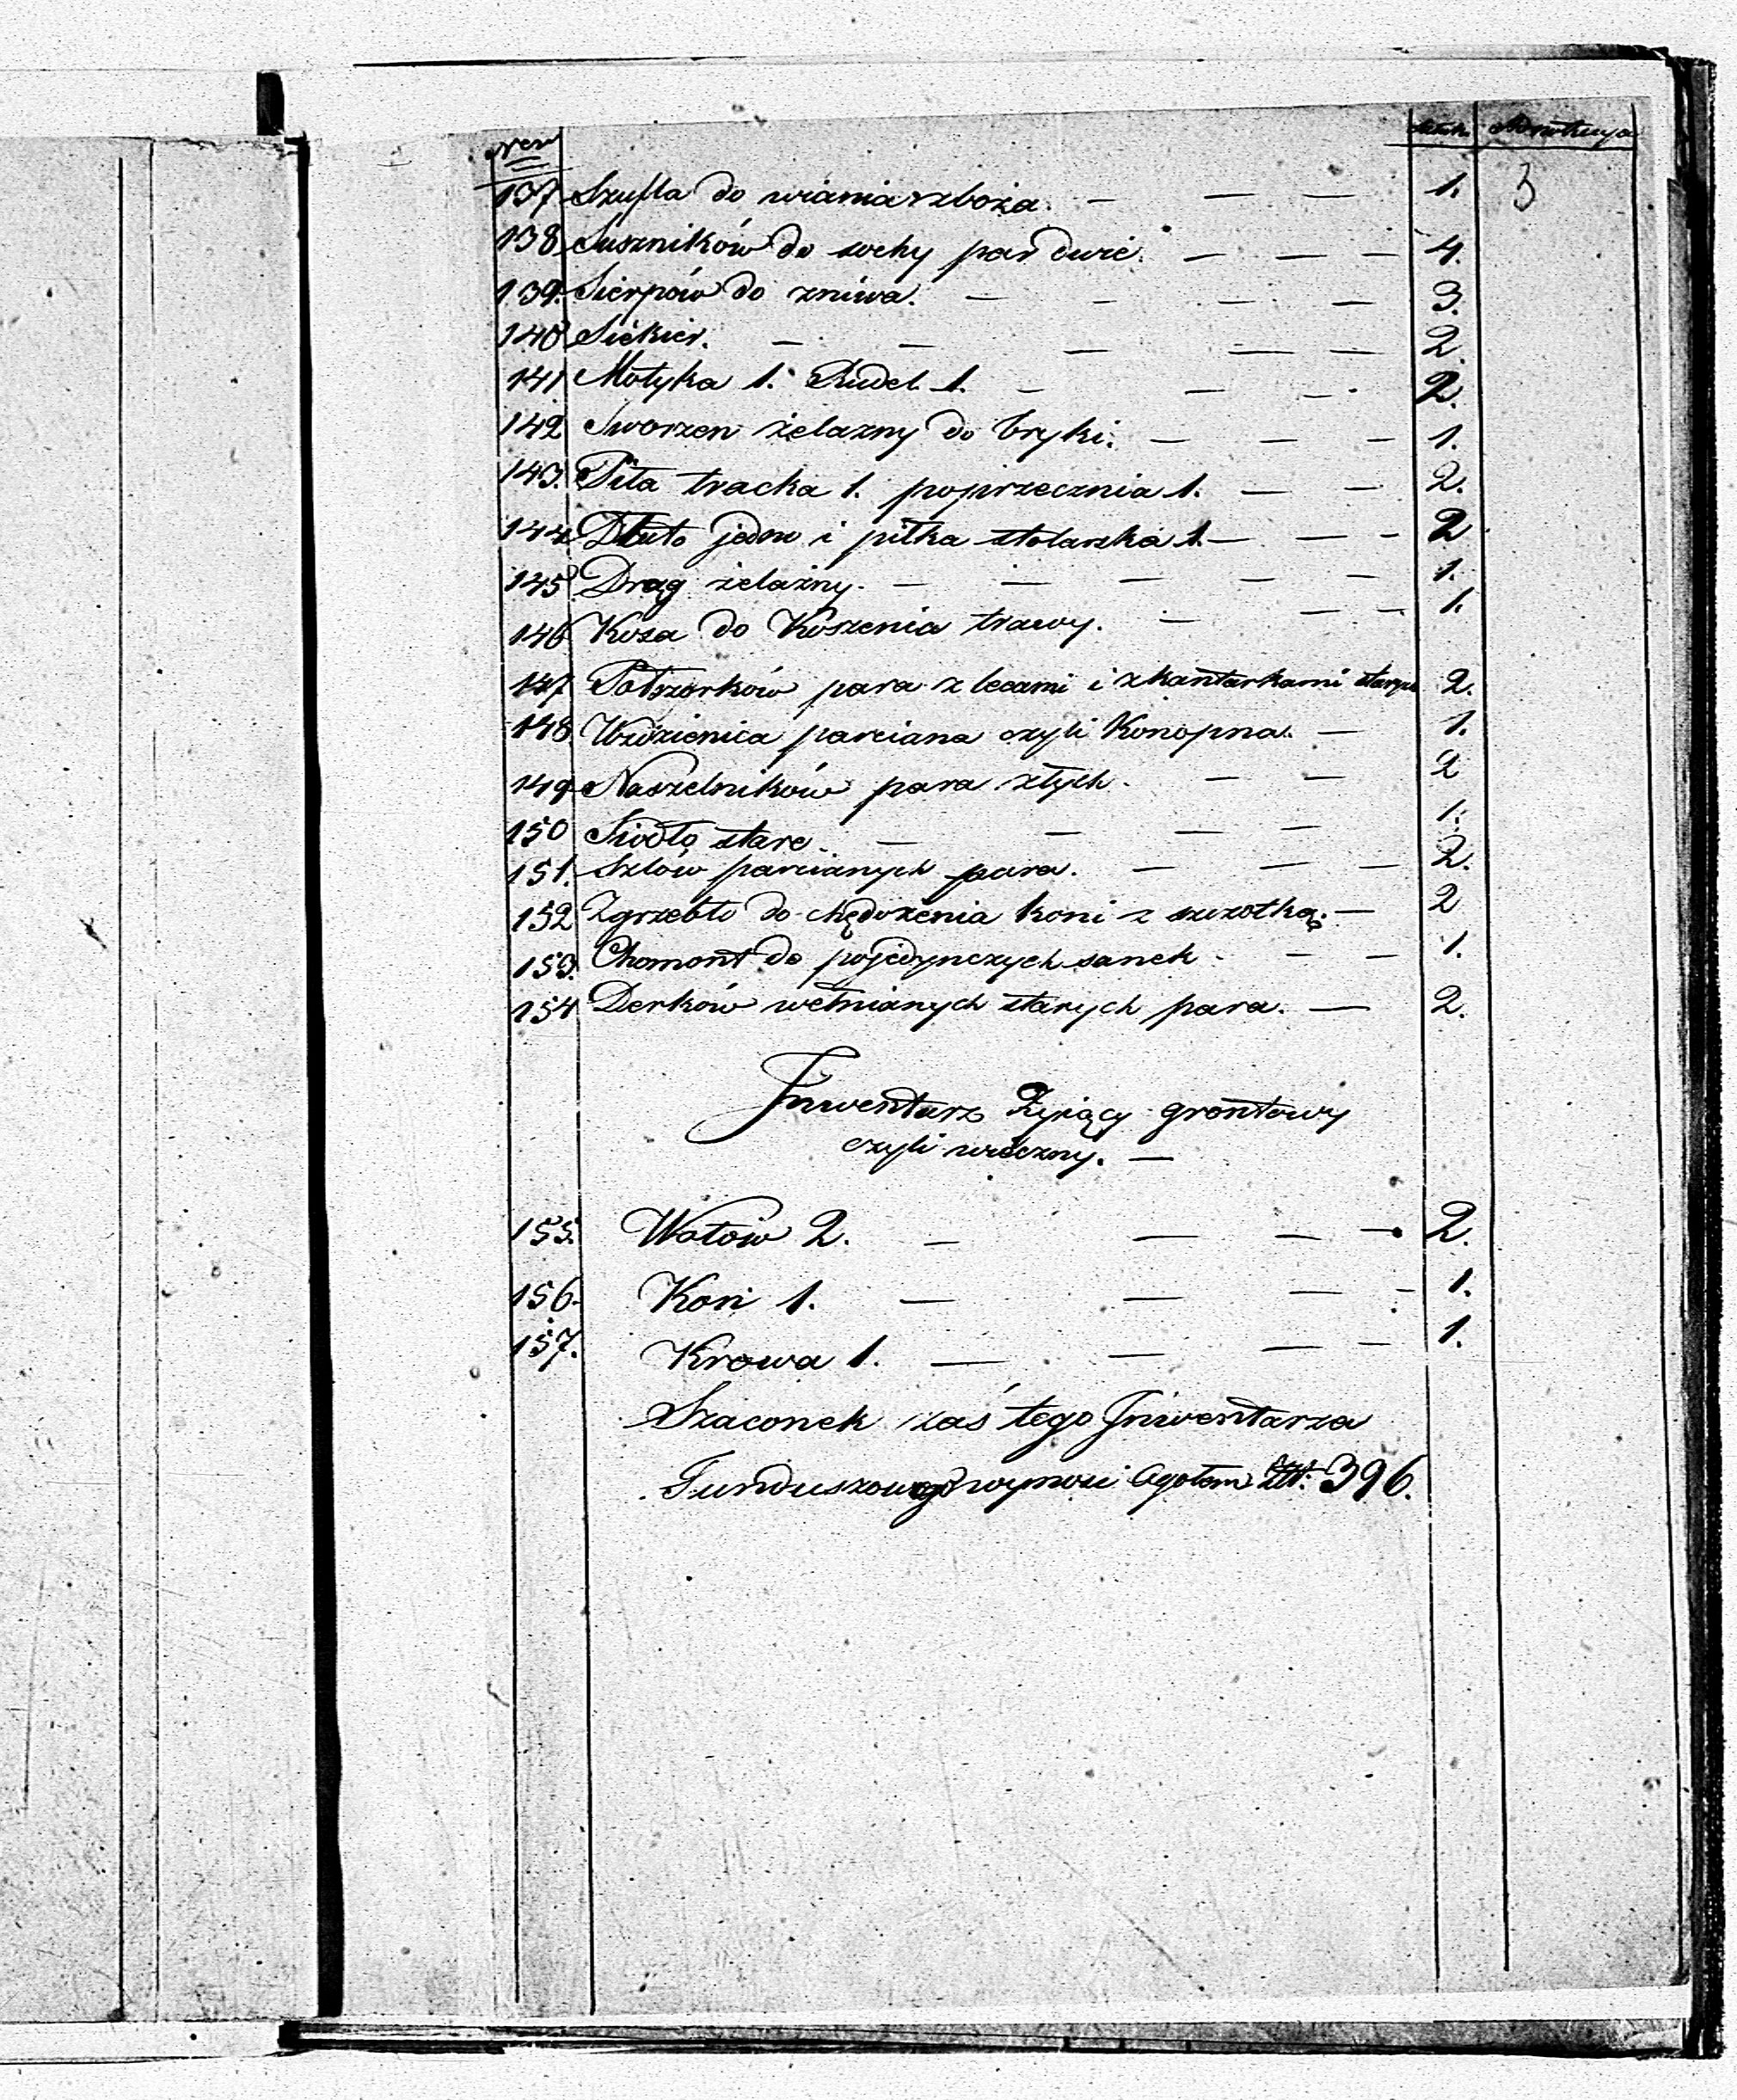 Ner Sztuk Adnotacya
137 Szufla do wiania zboża. — — — 1. 3
138 Suszników do sochy par dwie. — — — 4.
139. Sierpów do żniwa. — — — — 3.
140 Siekier. — — — — — 2.
141. Motyka 1. Rydel 1. — — — 2.
142 Sworzen żelazny do bryki. — — — 1.
143. Piła tracka 1. poprzecznia 1. — — 2.
144 Dłuto jedno i piłka stolarska 1. — — — 2
145 Drąg żelazny. — — — — — 1.
146 Kosa do Koszenia trawy. — — — 1.
147 Półszorków para z lecami i z kantarkami starych 2.
148. Uździenica parciana czyli Konopna. — 1.
149 Naszelników para złych. — — 2
150 Siodło stare. — — — — 1.
151. Szlów parcianych para. — — — 2.
152 Zgrzebło do chędożenia koni z szczotką. — 2
153. Chomont do pojedynczych sanek. — — 1.
154 Derków wełnianych starych para. — 2.
Inwentarz Żyjący grontowy
czyli wieczny. —
155. Wołów 2. — — — — 2.
156. Koń 1. — — — — 1.
157. Krowa 1. — — — — 1.
Szacunek zaś tego Inwentarza
Funduszowego wynosi Ogółem Złł. 396.